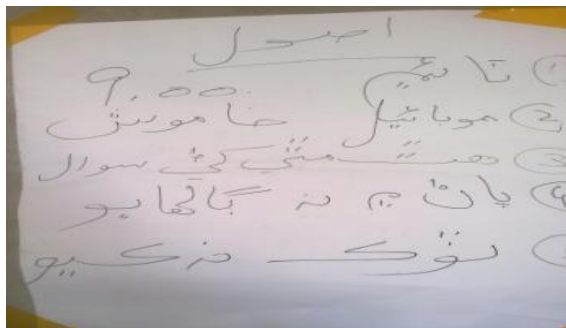 اصول
① ٽائيم 9.00
② موبائيل خاموش
③ هٿ مٿي کڻي سوال
④ پاڻ ۾ نه ڳالهابو
ٽوڪ نه ڪيو